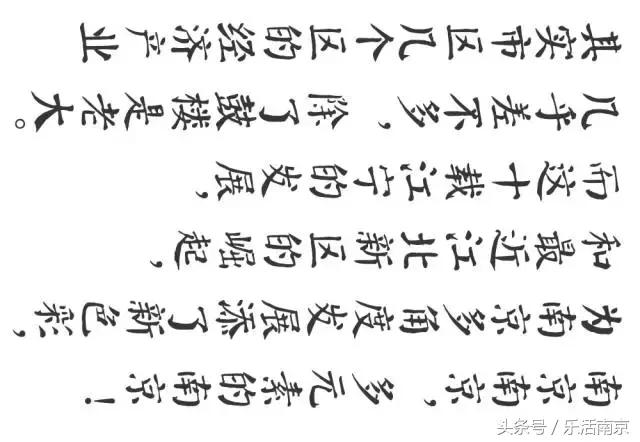 其实市区几个区的经济产业
几乎差不多，除了鼓楼是老大。
而这十载江宁的发展，
和最近江北新区的崛起，
为南京多角度发展添了新色彩，
南京南京，多元素的南京！
头条号 / 乐活南京